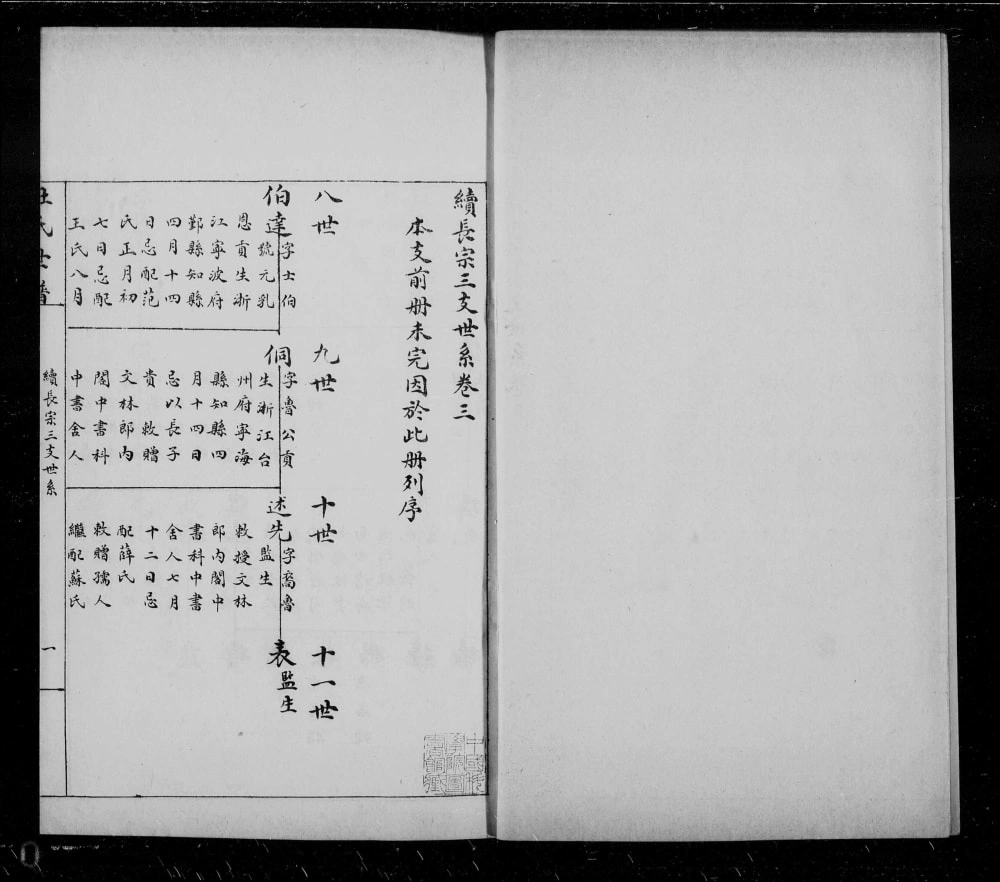 續長宗三支世系卷三
本支前册未完因於此册列序
八世
九世
十世
十一世
伯達
字士伯
號元乳
恩貢生浙
江寧波府
鄞縣知縣
四月十四
日忌配范
氏正月初
七日忌配
王氏八月
侗
字魯公貢
生浙江台
州府寧海
縣知縣四
月十四日
忌以長子
貴 敕贈
文林郎内
閣中書科
中書舍人
述先
字裔魯
監生
敕授文林
郎内閣中
書科中書
舍人七月
十二日忌
配薛氏
敕贈孺人
繼配蘇氏
表
監生
杜氏世譜
續長宗三支世系
一